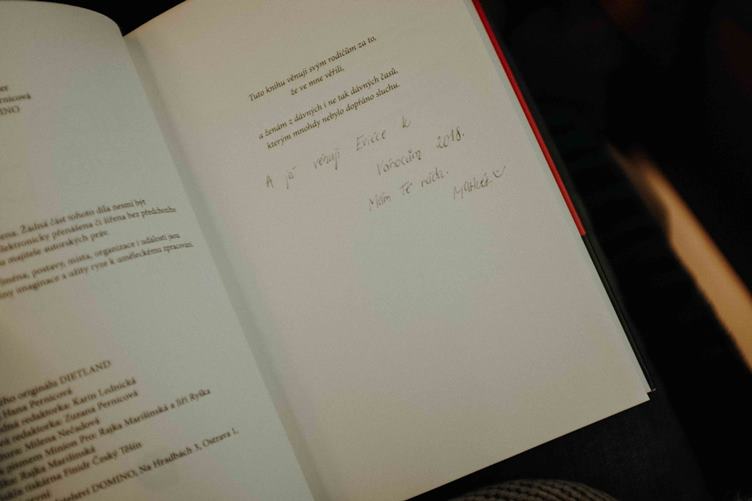 er
ernicová
INO
ena. Žádná část tohoto díla nesmí být
elektronicky přenášena či šířena bez předchozího
u majitele autorských práv.
jména, postavy, místa, organizace i události jsou
iny imaginace a užity ryze k uměleckému zpracování.
ého originálu DIETLAND
Hana Pernicová
redaktorka: Karin Lednická
á redaktorka: Zuzana Pernicová
Milena Nečadová
písmem Minion Pro: Rajka Marišinská a Jiří Ryška
Rajka Marišinská
tiskárna Finidr Český Těšín
DOMINO, Na Hradbách 3, Ostrava 1,
Tuto knihu věnuji svým rodičům za to,
že ve mne věřili,
a ženám z dávných i ne tak dávných časů,
kterým mnohdy nebylo dopřáno sluchu.
A já věnuji Evičce k
Vánocům 2018.
Mám Tě ráda.